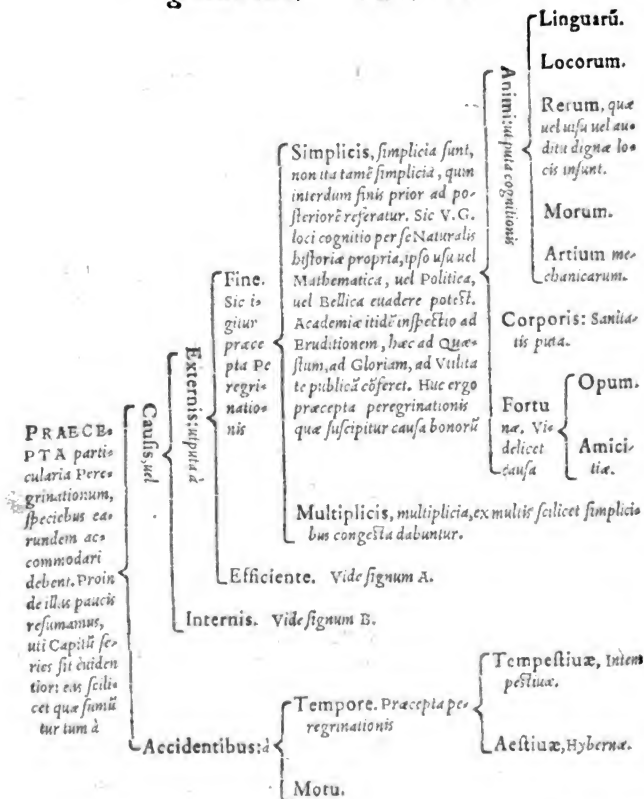 PRAECE-
PTA parti-
cularia Pere-
grinationum,
speciebus ea-
rundem ac-
commodari
debent. Proin
de illas paucis
resumamus,
uti Capitũ se-
ries sit euiden
tior: eas scili-
cet quæ sumũ
tur tum à
Causis, uel
Externis: utputa à
Fine.
Sic i-
gitur
præce
pta Pe
regri-
natio-
nis
Simplicis, simplicia sunt,
non ita tamẽ simplicia, quin
interdum finis prior ad po-
steriorẽ referatur. Sic V.G.
loci cognitio per se Naturalis
historiæ propria, ipso usu uel
Mathematica, uel Politica,
uel Bellica euadere potest.
Academiæ itidẽ inspectio ad
Eruditionem, hæc ad Quæ-
stum, ad Gloriam, ad Vtilita
tẽ publicã cõferet. Huc ergo
præcepta peregrinationis
quæ suscipitur causa bonorũ
Animi: ut puta cognitionis
Linguarũ.
Locorum.
Rerum, quæ
uel uisu uel au-
ditu dignæ lo-
cis insunt.
Morum.
Artium me-
chanicarum.
Corporis: Sanita-
tis puta.
Fortu
næ. Vi-
delicet
causa
Opum.
Amici-
tiæ.
Multiplicis, multiplicia, ex multis scilicet simplici-
bus congesta dabuntur.
Efficiente. Vide signum A.
Internis. Vide signum B.
Accidentibus: à
Tempore. Præcepta pe-
regrinationis
Tempestiuæ, Intem
pestiuæ.
Aestiuæ, Hybernæ.
Motu.